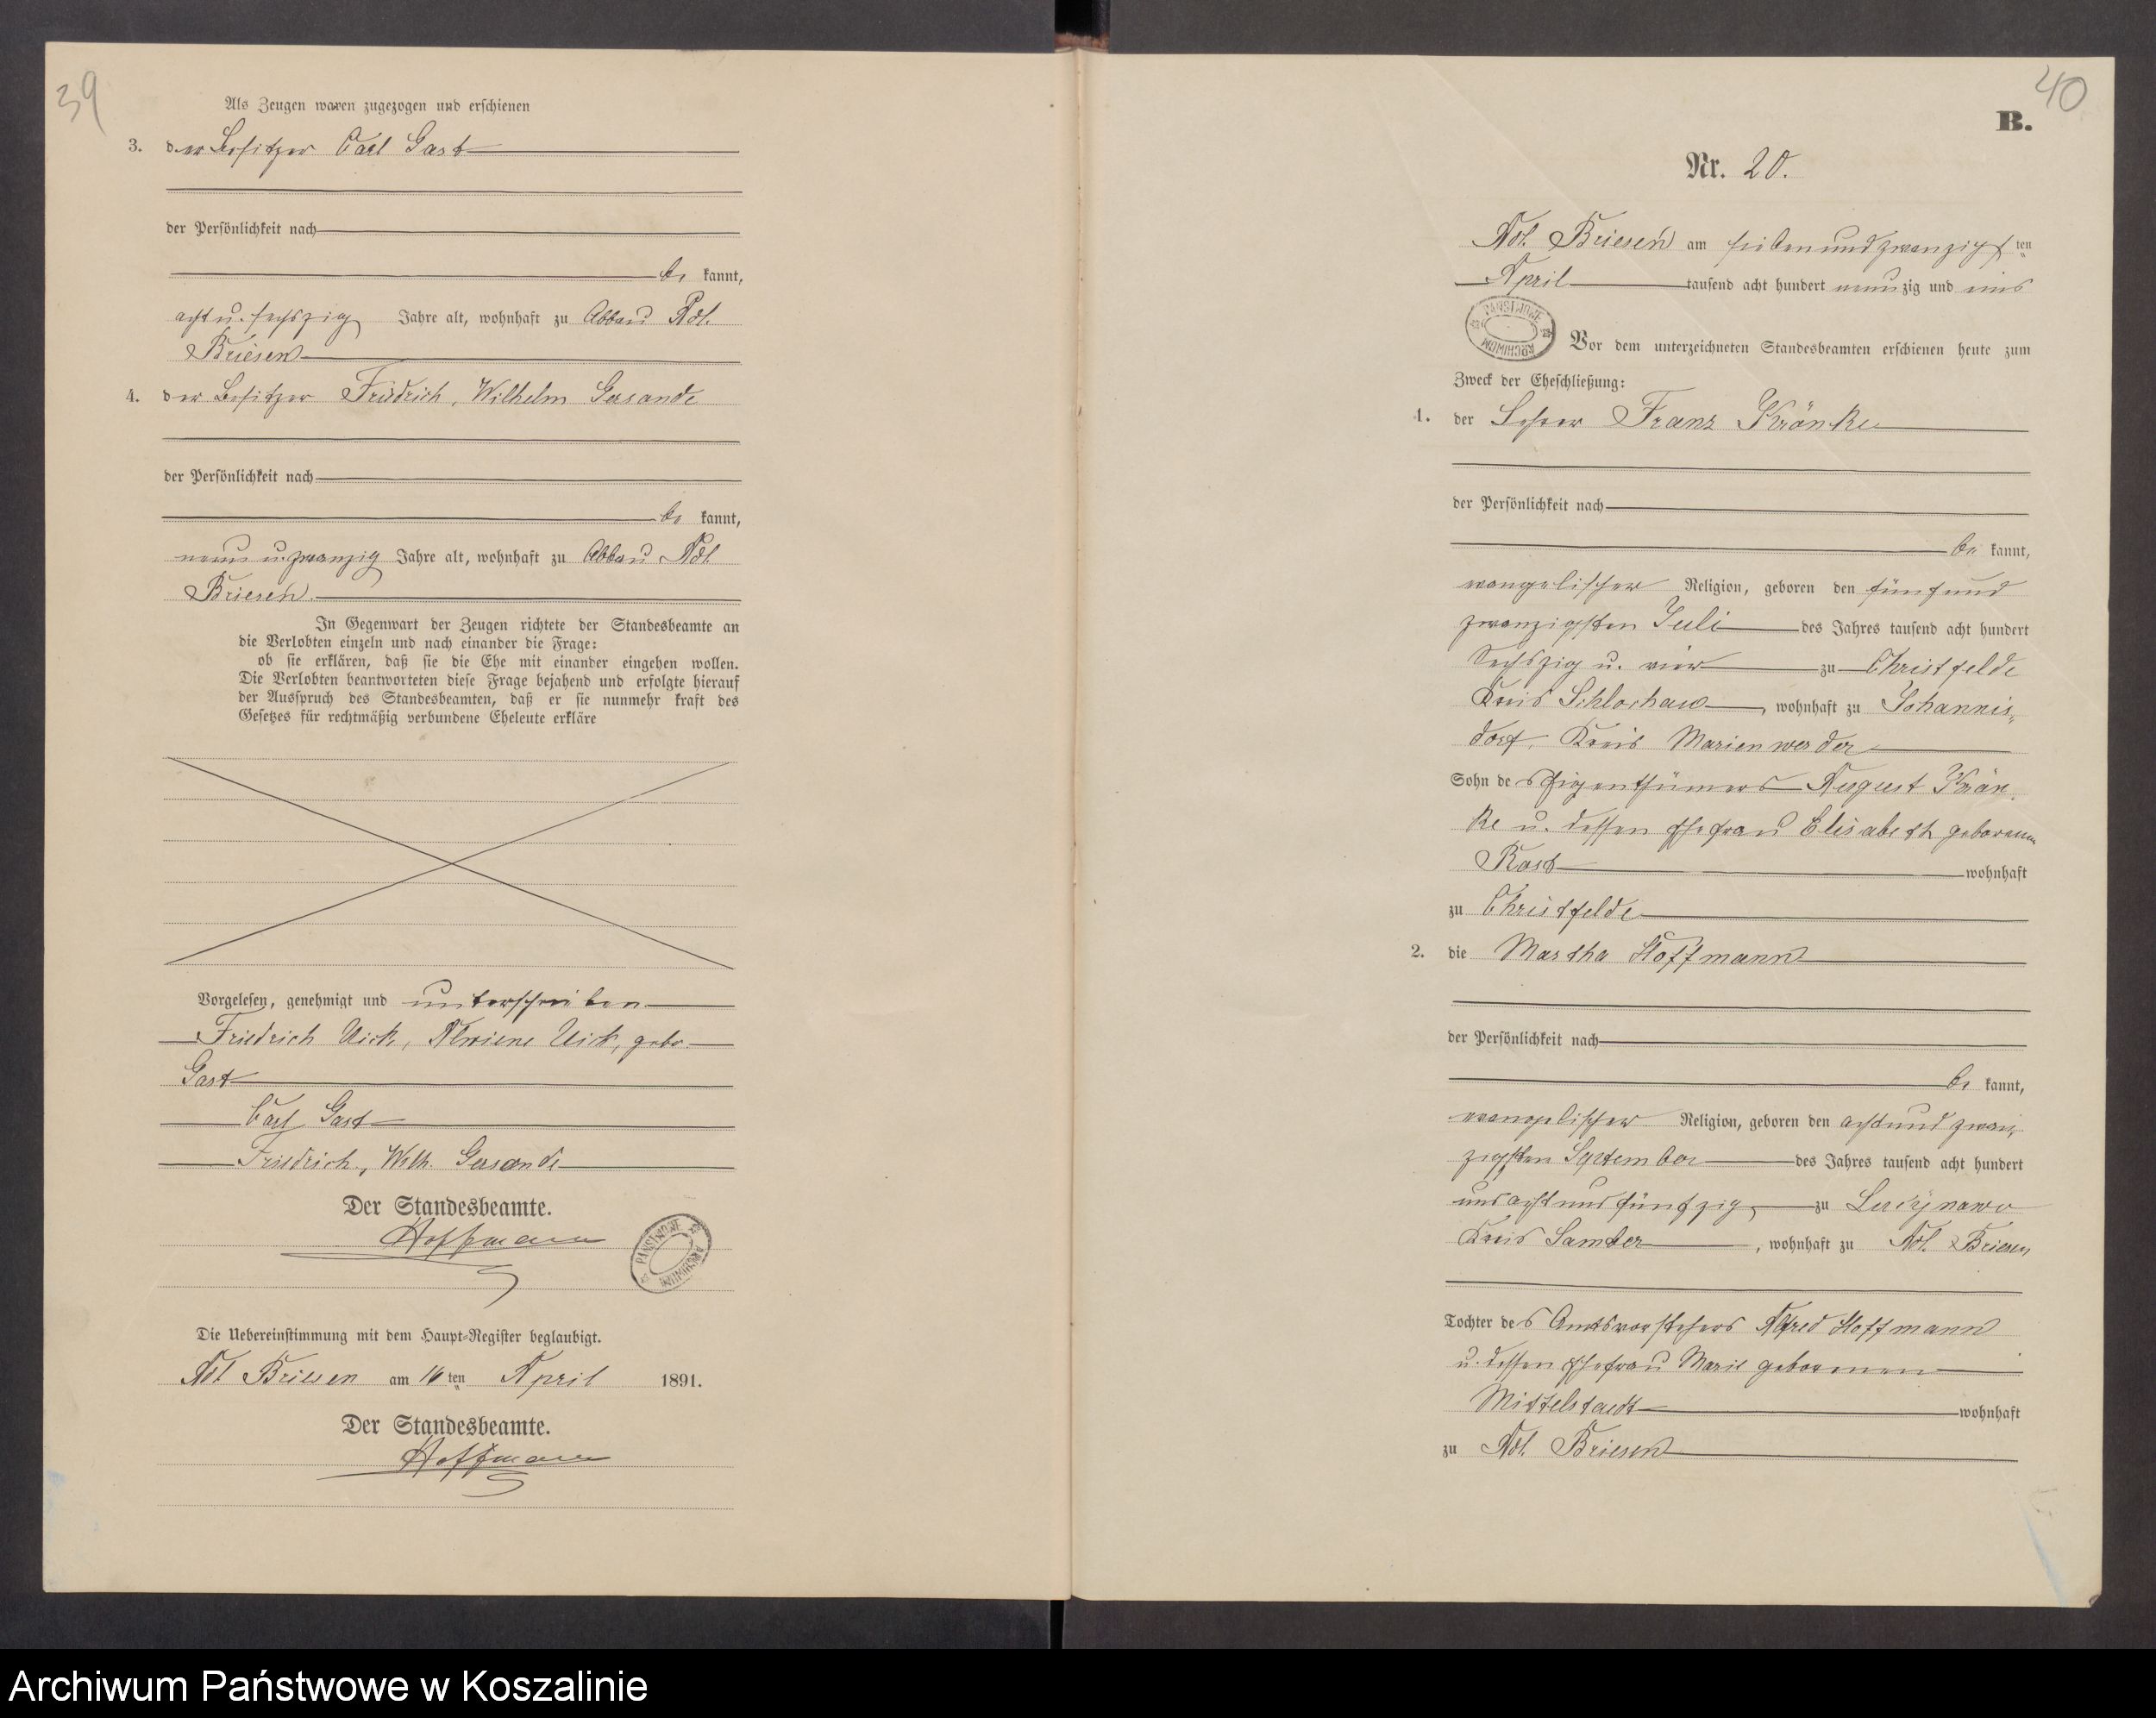 39
Als Zeugen waren zugezogen und erschienen
3. der Besitzer Carl Gast
der Persönlichkeit nach
be kannt,
acht u. sechszig Jahre alt, wohnhaft zu Abbau Adl.
Briesen
4. der Besitzer Friedrich, Wilhelm Gersande
der Persönlichkeit nach
be kannt,
neun u. zwanzig Jahre alt, wohnhaft zu Abbau Adl
Briesen.
In Gegenwart der Zeugen richtete der Standesbeamte an
die Verlobten einzeln und nach einander die Frage:
ob sie erklären, daß sie die Ehe mit einander eingehen wollen.
Die Verlobten beantworteten diese Frage bejahend und erfolgte hierauf
der Ausspruch des Standesbeamten, daß er sie nunmehr kraft des
Gesetzes für rechtmäßig verbundene Eheleute erkläre
Vorgelesen, genehmigt und unterschrieben
Friedrich Uick, Alwiene Uick, gebo.
Gast
Carl Gast
Friedrich, Wilh. Gersande
Der Standesbeamte.
Hoffmann
PAŃSTWOWE ARCHIWUM
Die Uebereinstimmung mit dem Haupt-Register beglaubigt.
Adl Briesen am 16 ten April 1891.
Der Standesbeamte.
Hoffmann
40
B.
Nr. 20.
Adl. Briesen am siebenundzwanzigsten
April tausend acht hundert neunzig und eins
PAŃSTWOWE ARCHIWUM
Vor dem unterzeichneten Standesbeamten erschienen heute zum
Zweck der Eheschließung:
1. der Lehrer Franz Kränke
der Persönlichkeit nach
be kannt,
evangelischer Religion, geboren den fünfund
zwanzigsten Juli des Jahres tausend acht hundert
Sechszig u. vier zu Christfelde
Kreis Schlochau, wohnhaft zu Johannis„
dorf, Kreis Marienwerder
Sohn des Eigenthümers August Krän„
ke u. dessen Ehefrau Elisabeth geborenen
Rast wohnhaft
zu Christfelde
2. die Martha Hoffmann
der Persönlichkeit nach
be kannt,
evangelischer Religion, geboren den achtund zwan„
zigsten September des Jahres tausend acht hundert
und acht und fünfzig, zu
Kreis Samter, wohnhaft zu Adl. Briesen
Tochter des Amtsvorstehers Alfred Hoffmann
u. dessen Ehefrau Marie geborenen
Mittelstaedt wohnhaft
zu Adl. Briesen
Archiwum Państwowe w Koszalinie